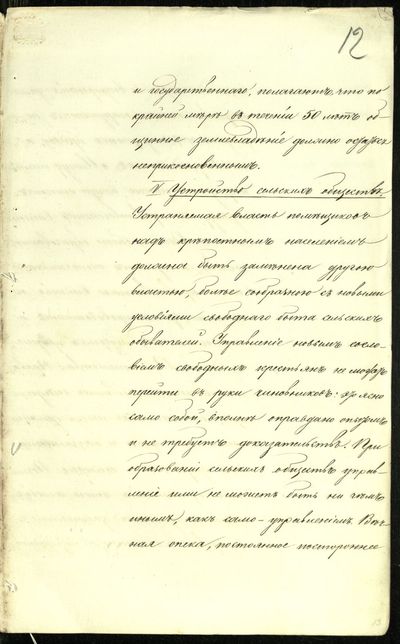 12
и государственнаго, полагаютъ что по
крайней мѣрѣ въ теченіи 50 лѣтъ об-
щинное землевладѣніе должно остаться
неприкосновеннымъ.
V Устройство сельскихъ обществъ.
Устраняемая власть помѣщиковъ
надъ крѣпостнымъ населеніемъ
должна быть замѣнена другою
властью, болѣе сообразною съ новыми
условіями свободнаго быта сельскихъ
обывателей. Управленіе новымъ сосло-
віемъ свободныхъ крестьянъ не можетъ
перейти въ руки чиновниковъ: это ясно
само собой, вполнѣ оправдано опытомъ
и не требуетъ доказательствъ. При
образованіи сельскихъ обществъ управ-
леніе ими не можетъ быть ни чѣмъ
инымъ, какъ само-управленіемъ. Вѣч-
ная опека, постоянное постороннее